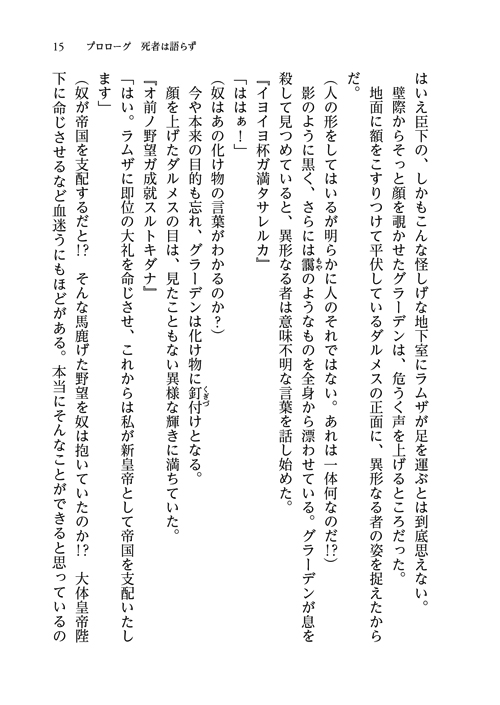 15　プロローグ　死者は語らず
はいえ臣下の、しかもこんな怪しげな地下室にラムザが足を運ぶとは到底思えない。
　壁際からそっと顔を覗かせたグラーデンは、危うく声を上げるところだった。
　地面に額をこすりつけて平伏しているダルメスの正面に、異形なる者の姿を捉えたから
だ。
（人の形をしてはいるが明らかに人のそれではない。あれは一体何なのだ!?）
　影のように黒く、さらには靄のようなものを全身から漂わせている。グラーデンが息を
もや
殺して見つめていると、異形なる者は意味不明な言葉を話し始めた。
『イヨイヨ杯ガ満タサレルカ』
「ははぁ！」
（奴はあの化け物の言葉がわかるのか？）
　今や本来の目的も忘れ、グラーデンは化け物に釘付けとなる。
くぎづ
　顔を上げたダルメスの目は、見たこともない異様な輝きに満ちていた。
『オ前ノ野望ガ成就スルトキダナ』
「はい。ラムザに即位の大礼を命じさせ、これからは私が新皇帝として帝国を支配いたし
ます」
（奴が帝国を支配するだと!?　そんな馬鹿げた野望を奴は抱いていたのか!?　大体皇帝陛
下に命じさせるなど血迷うにもほどがある。本当にそんなことができると思っているの